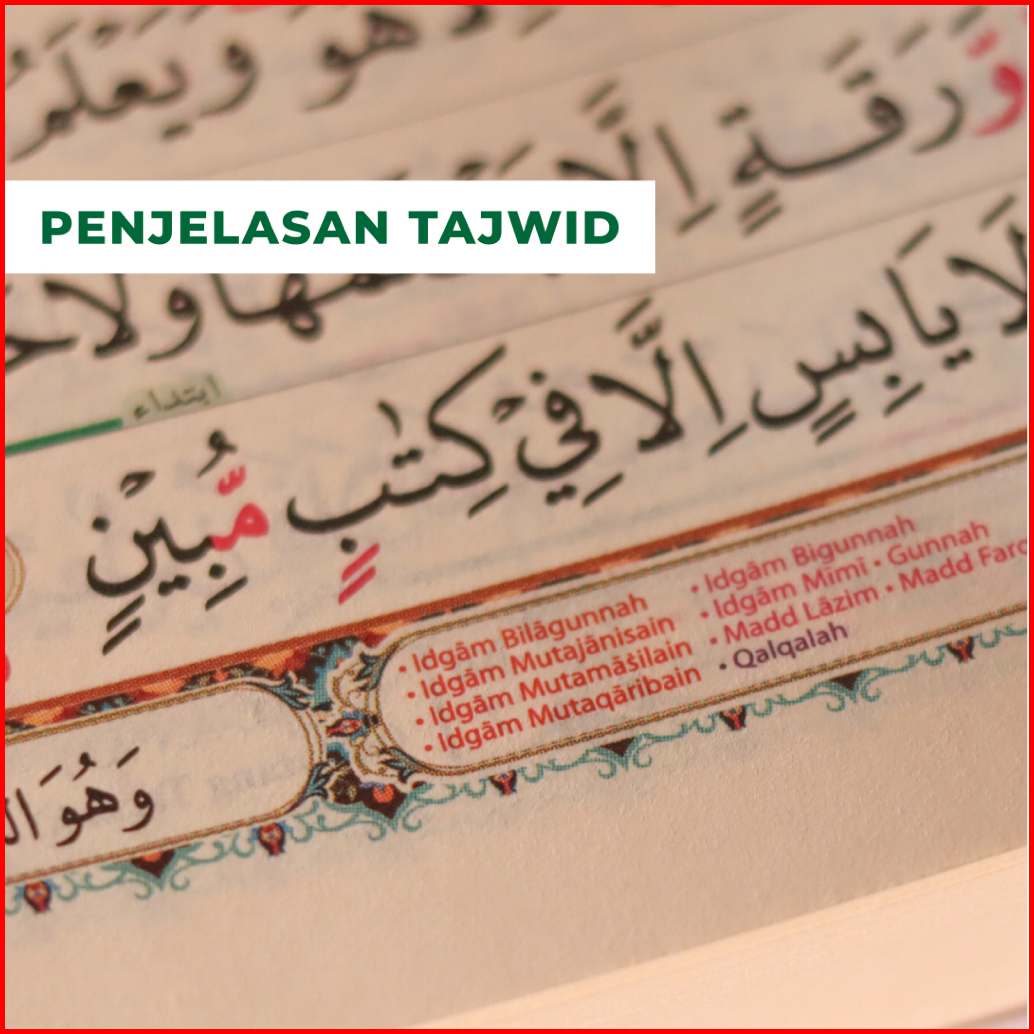 هو ويعلم
وَّرَقَةٍ اِلَّا
PENJELASAN TAJWID
وَلَا
ابتداء
لَا يَابِسٍ اِلَّا فِيْ كِتٰبٍ مُّبِيْنٍ
• Idgām Bilāgunnah
• Idgām Mutajānisain
• Idgām Mutamāšilain
• Idgām Mutaqāribain
• Idgām Bigunnah
• Idgām Mimi • Gunnah
• Madd Lâzim • Madd
• Qalqalah
وَهُوَ